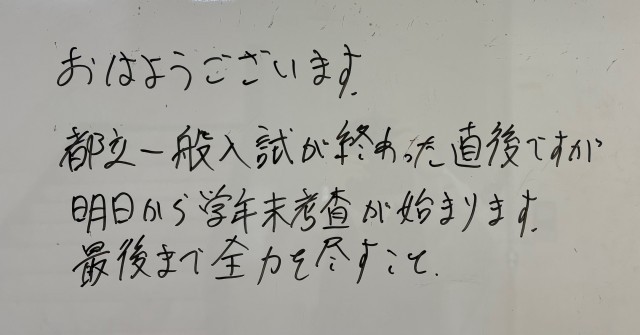 おはようございます.
都立一般入試が終わった直後ですが
明日から学年末考査が始まります.
最後まで全力を尽すこと.